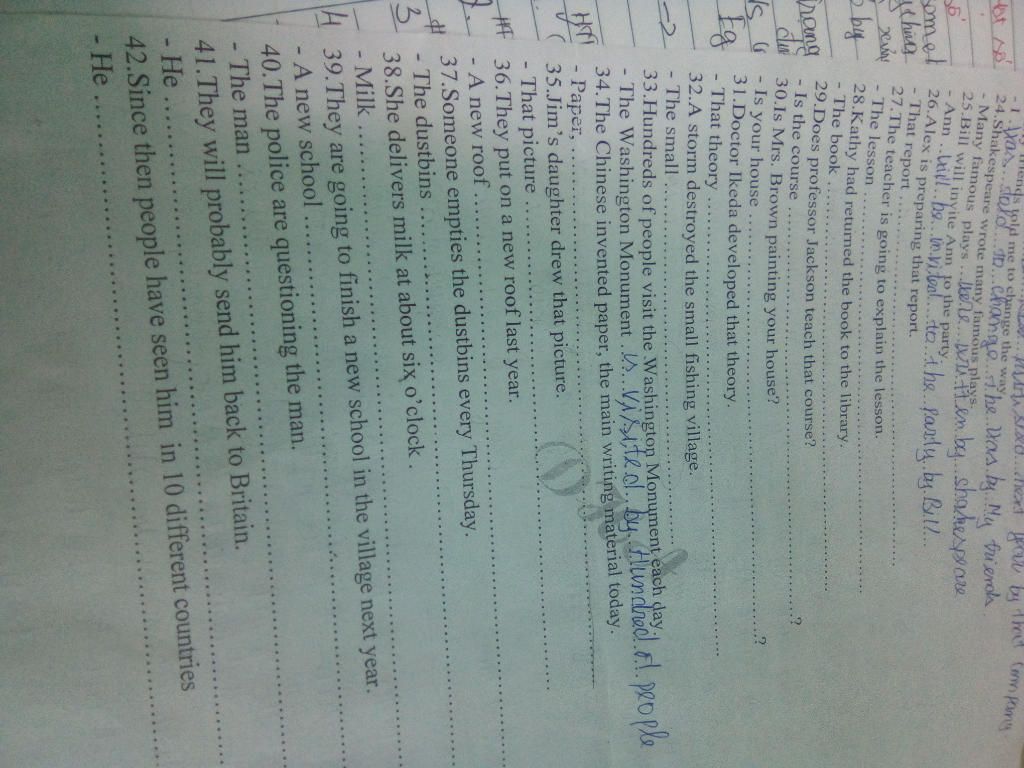 friends told me to change the way.
- I was told to change the way by My friends
24.Shakespeare wrote many famous plays.
- Many famous plays ...were written by shakespeare
25.Bill will invite Ann to the party.
- Ann ...will be invited to the party by Bill
26.Alex is preparing that report.
- That report ..........
27.The teacher is going to explain the lesson.
- The lesson ..........
28.Kathy had returned the book to the library.
- The book ..........
29.Does professor Jackson teach that course?
- Is the course ..........?
30.Is Mrs. Brown painting your house?
- Is your house ..........?
31.Doctor Ikeda developed that theory.
- That theory ..........
32.A storm destroyed the small fishing village.
- The small ..........
33.Hundreds of people visit the Washington Monument each day.
- The Washington Monument is visited by Hundred of people
34.The Chinese invented paper, the main writing material today.
- Paper, ..........
35.Jim's daughter drew that picture.
- That picture ..........
36.They put on a new roof last year.
- A new roof ..........
37.Someone empties the dustbins every Thursday.
- The dustbins ..........
38.She delivers milk at about six o'clock.
- Milk ..........
39.They are going to finish a new school in the village next year.
- A new school ..........
40.The police are questioning the man.
- The man ..........
41.They will probably send him back to Britain.
- He ..........
42.Since then people have seen him in 10 different countries
- He ..........